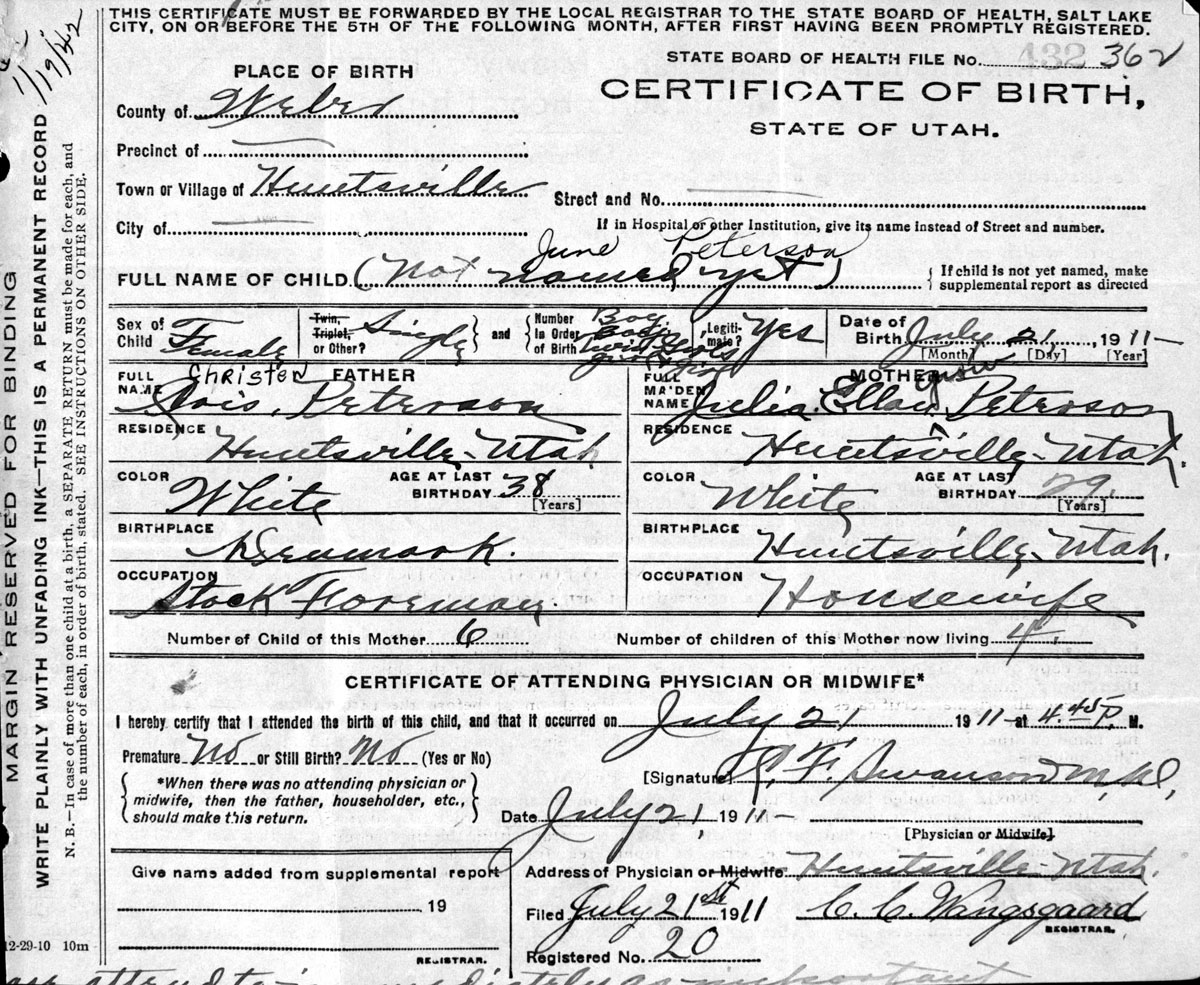 THIS CERTIFICATE MUST BE FORWARDED BY THE LOCAL REGISTRAR TO THE STATE BOARD OF HEALTH, SALT LAKE
CITY, ON OR BEFORE THE 5TH OF THE FOLLOWING MONTH, AFTER FIRST HAVING BEEN PROMPTLY REGISTERED.
11/19/42
STATE BOARD OF HEALTH FILE No. 432 362
PLACE OF BIRTH
CERTIFICATE OF BIRTH,
STATE OF UTAH.
County of Weber
Precinct of
Town or Village of Huntsville
Street and No.
City of
If in Hospital or other Institution, give its name instead of Street and number.
June Peterson
FULL NAME OF CHILD (Not named yet)
If child is not yet named, make
supplemental report as directed
Sex of Child Female
Twin, Triplet, or Other? Single
and
Number In Order of Birth
Legiti-mate? Yes
Date of Birth July 21, 1911
[Month] [Day] [Year]
FATHER
FULL NAME Christen Peterson
RESIDENCE Huntsville-Utah
COLOR White
AGE AT LAST BIRTHDAY 38
[Years]
BIRTHPLACE Denmark.
OCCUPATION Stock Foreman.
MOTHER
FULL MAIDEN NAME Julia Peterson
RESIDENCE Huntsville-Utah.
COLOR White
AGE AT LAST BIRTHDAY 29.
[Years]
BIRTHPLACE Huntsville-Utah.
OCCUPATION Housewife
Number of Child of this Mother 6
Number of children of this Mother now living 4.
CERTIFICATE OF ATTENDING PHYSICIAN OR MIDWIFE*
I hereby certify that I attended the birth of this child, and that it occurred on July 21 1911 at 4.45 P. M.
Premature No or Still Birth? No (Yes or No)
*When there was no attending physician or
midwife, then the father, householder, etc.,
should make this return.
[Signature] F. Swanson M.D.
Date July 21, 1911
[Physician or Midwife]
Give name added from supplemental report
19
REGISTRAR.
Address of Physician or Midwife Huntsville-Utah.
Filed July 21st 1911 C. C. Wangsgaard
REGISTRAR.
Registered No. 20
12-29-10 10m
MARGIN RESERVED FOR BINDING
WRITE PLAINLY WITH UNFADING INK—THIS IS A PERMANENT RECORD
N. B.—In case of more than one child at a birth, a SEPARATE RETURN must be made for each, and
the number of each, in order of birth, stated. SEE INSTRUCTIONS ON OTHER SIDE.